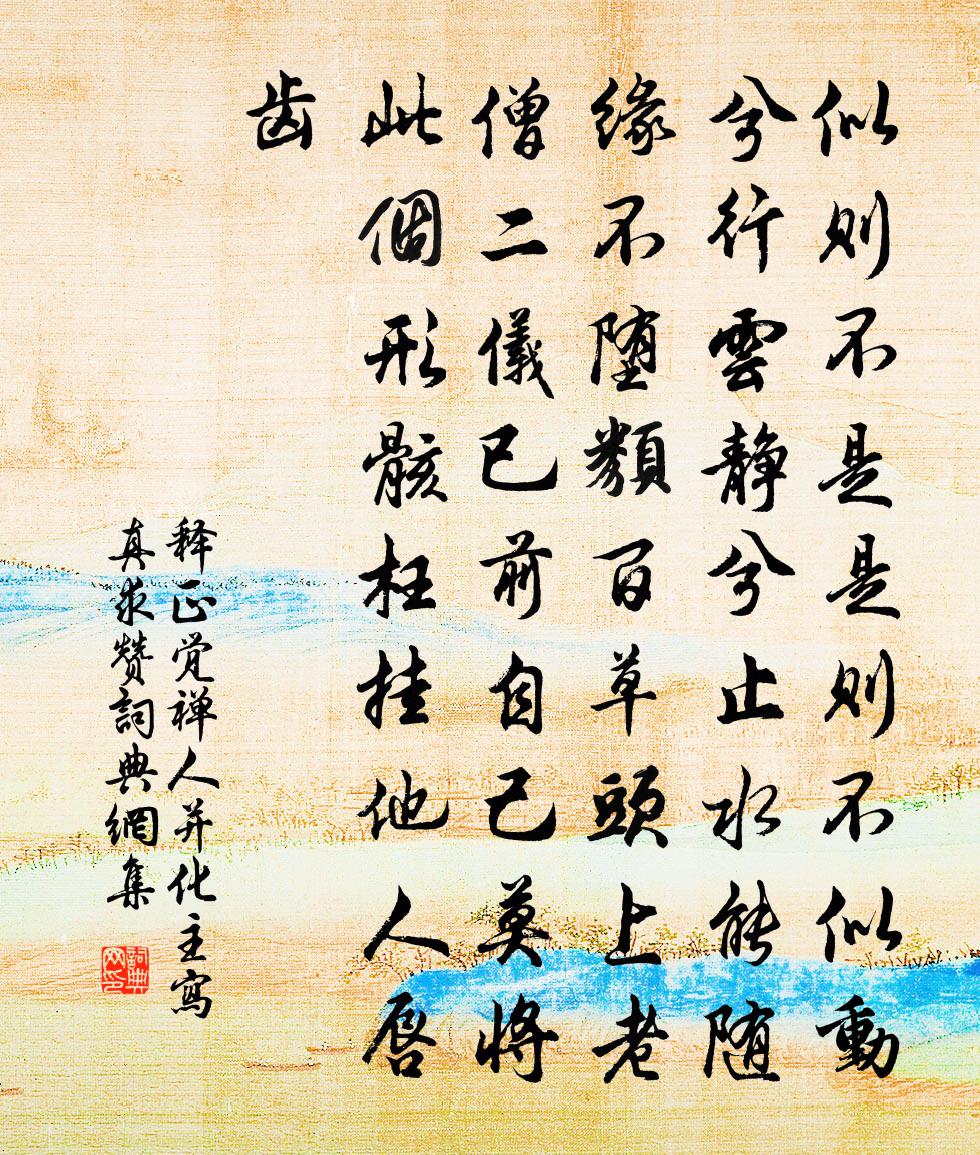 似则不是是则不似動
兮行雲静兮止水能随
缘不堕類百草頭上老
僧二儀已前自己莫将
此個形骸枉挂他人唇
齿
释正觉禅人并化主寫
真求赞詞典網集